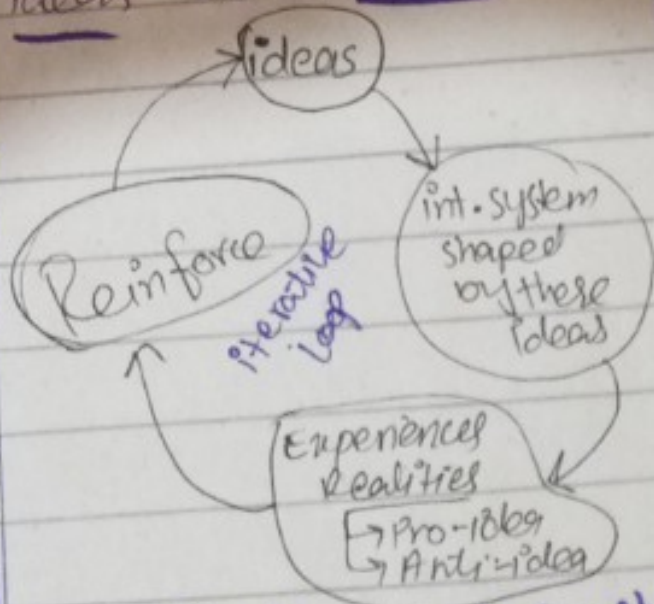 ideas
int. system
shaped
by these
ideas
Experiences
Realities
→ Pro-idea
→ Anti-idea
Reinforce
iterative
loop